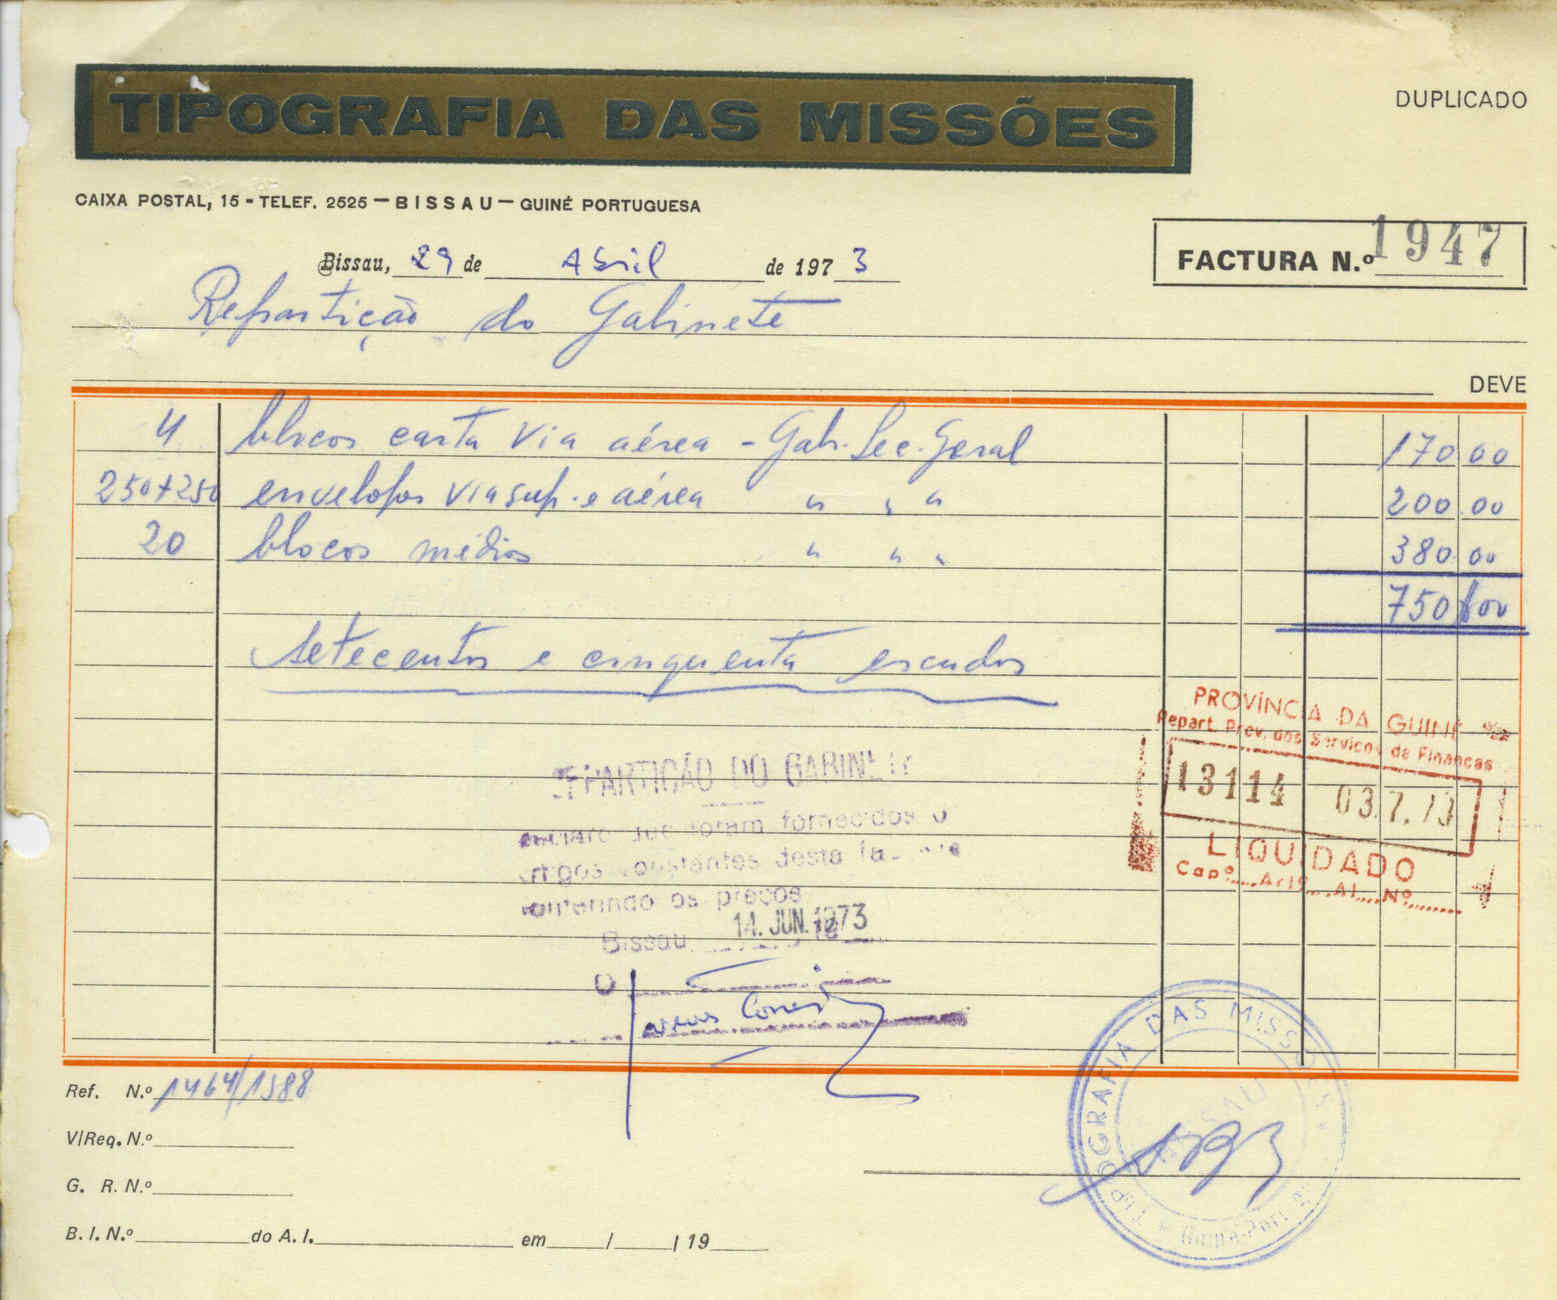 TIPOGRAFIA DAS MISSÕES
DUPLICADO
CAIXA POSTAL, 15 - TELEF. 2525 — BISSAU — GUINÉ PORTUGUESA
FACTURA N.º 1947
Bissau, 29 de Abril de 1973
Repartição do Gabinete
DEVE
4 blocos carta via aérea - Gab. Sec. Geral 170 00
250+250 envelopes via sup. e aérea " " " 200 00
20 blocos médios " " " 380 00
750$00
Setecentos e cinquenta escudos
PROVÍNCIA DA GUINÉ
Repart. Prov. dos Serviços de Finanças
13114 03.7.73
LIQUIDADO
Capº.... Artº.... Al.... Nº.......
REPARTIÇÃO DO GABINETE
Declaro que foram fornecidos o
artigos constantes desta
conferindo os preços
Bissau 14. JUN. 1973
O
Ref. N.º 1464/1588
V/Req. N.º
G. R. N.º
B. I. N.º do A. I. em / / 19
TIPOGRAFIA DAS MISSÕES
BISSAU